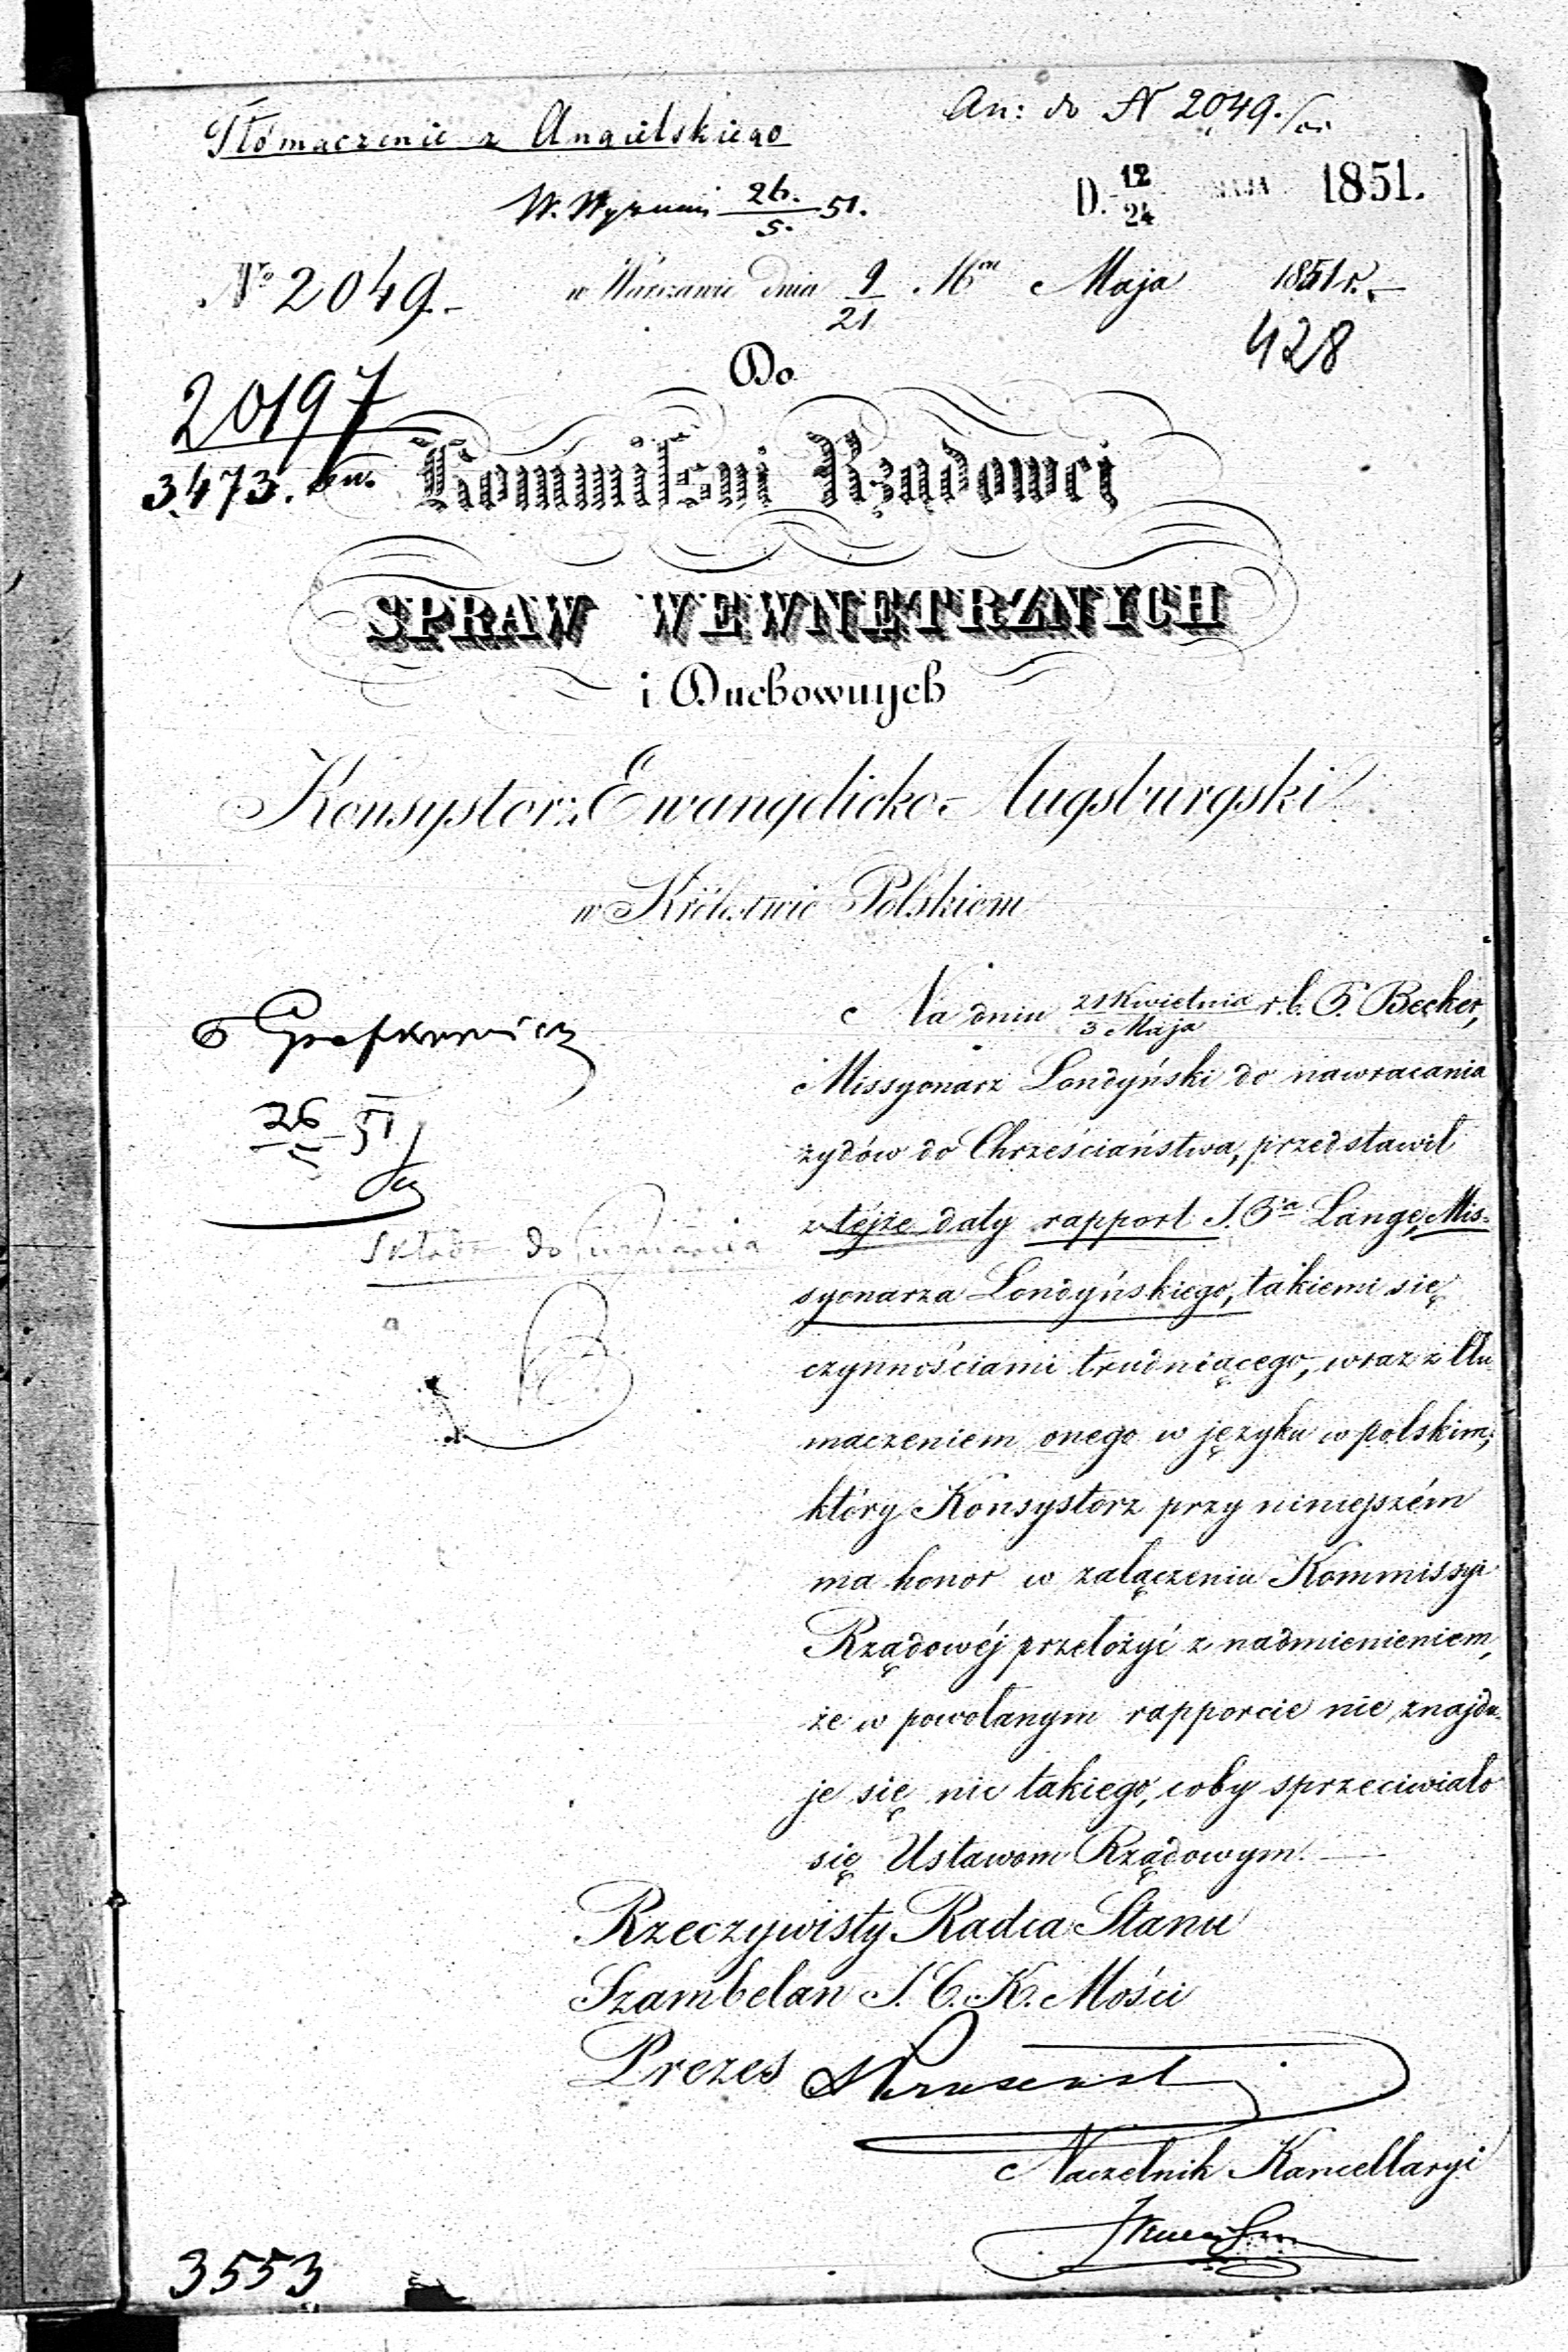 Tłómaczenie z Angielskiego
An: do N 2049.
26./5. 51.
D. 12/24 MAJA 1851.
№ 2049.-
w Warszawie dnia 9/21 Maja 1851 r.
428
Do
20197
3473.
Kommissyi Rządowej
SPRAW WEWNĘTRZNYCH
i Duchownych
Konsystorz Ewangelicko-Augsburgski
w Królestwie Polskiem
Na dniu 21 Kwietnia/3 Maja r. b. F. Becker,
Missyonarz Londyński do nawracania
żydów do Chrześciaństwa, przedstawił
z téjże daty rapport J. Langę, Mis-
syonarza Londyńskiego, takiemi się
czynnościami trudniącego, wraz z tłu-
maczeniem onego w języku w polskim,
który Konsystorz przy niniejszém
ma honor w załączeniu Kommissyi
Rządowéj przełożyć z nadmienieniem,
że w powołanym rapporcie nie znajdu-
je się nic takiego, coby sprzeciwiało
się Ustawom Rządowym.
26/5 51
do
Rzeczywisty Radca Stanu
Szambelan J. C. K. Mości
Prezes
Naczelnik Kancellaryi
3553